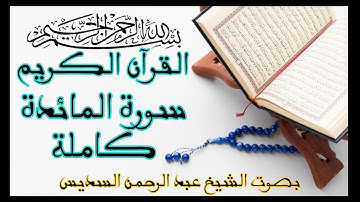 بسم الله الرحمن الرحيم
القرآن الكريم
سورة المائدة
كاملة
بصوت الشيخ عبد الرحمن السديس